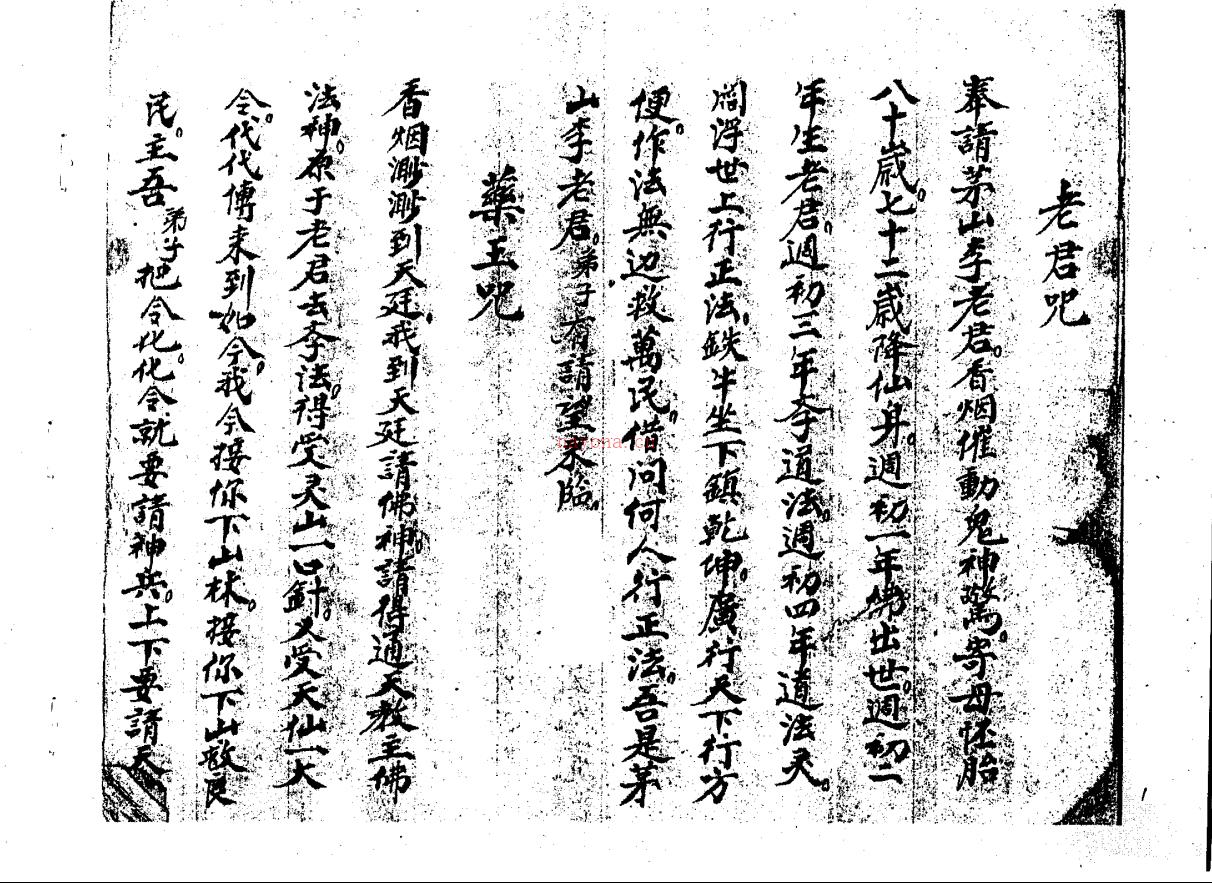 老君咒
奉請茅山李老君。香烟催動鬼神驚。寄母怀胎
八十歲。七十二歲降仙身。週初一年佛出世。週初二
年生老君。週初三年李道法。週初四年道法灵。
閻浮世上行正法。鉄牛坐下鎮乾坤。廣行天下行方
便。作法無边救萬民。借問何人行正法。吾是茅
山李老君。弟子有請望来臨。
藥王咒
香烟渺渺到天廷。我到天廷請佛神。請得通天教主佛
法神。原于老君去李法。得受灵山一口針。又受天仙一大
令。代代傳来到如今。我今接你下山林。接你下山救良
民。主吾弟子把令化。化令就要請神兵。上下要請天
1